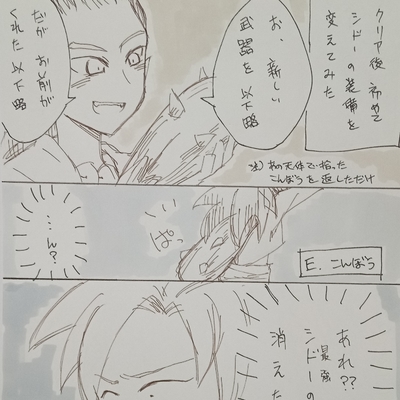 クリア後 初めて
シドーの装備を
変えてみた
お、新しい
武器を 以下略
だが お前が
くれた 以下略
注) 天体で拾った
こんぼうを返しただけ
E. こんぼう
ぱっ
…ん?
あれ??
最強
シドーの
消えた